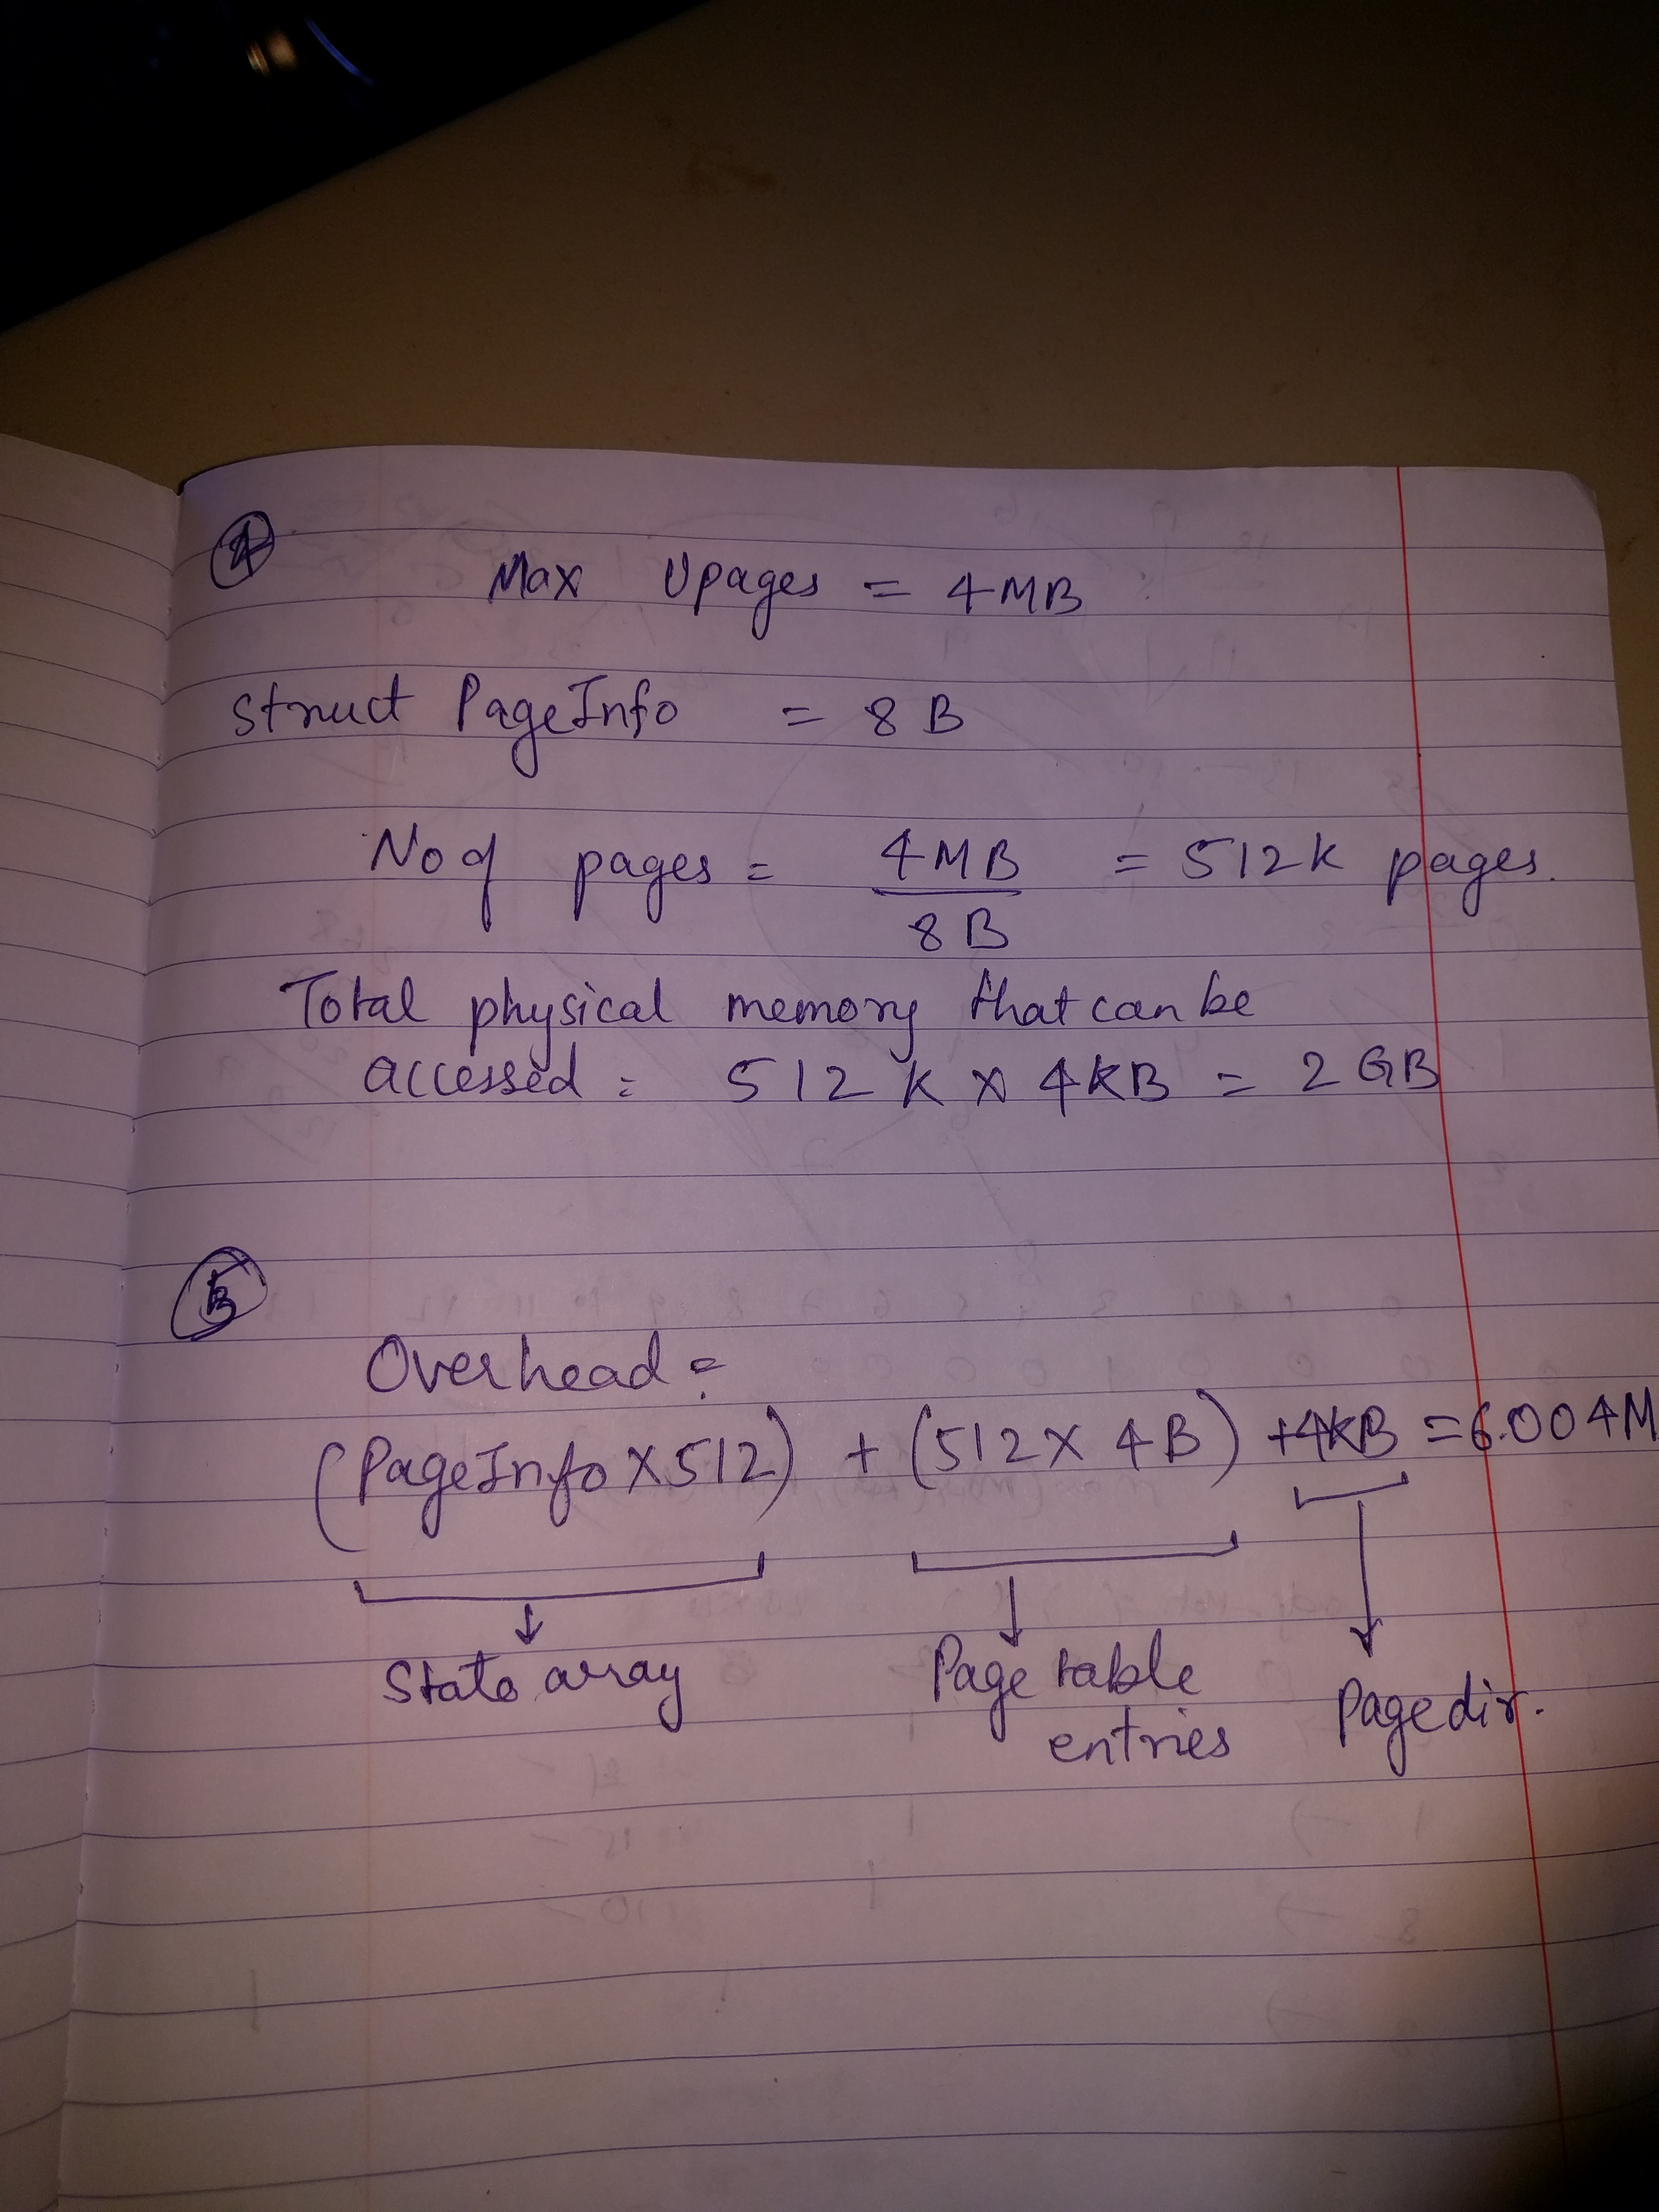 4
Max Upages = 4MB
Struct PageInfo = 8 B
No of pages = 4MB / 8B = 512K pages.
Total physical memory that can be
accessed = 512 K X 4KB = 2 GB
5
Overhead =
(PageInfo X 512) + (512 X 4B) + 4KB = 6.004M
State array
Page table
entries
Page dir.